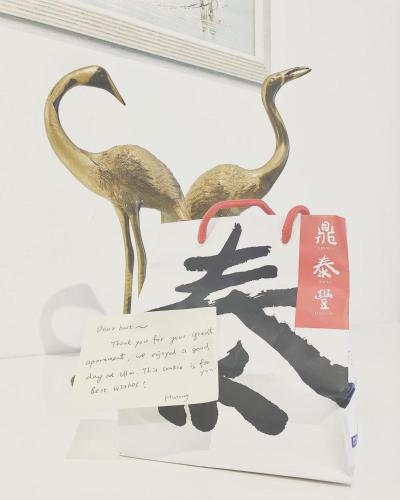 鼎
泰
豐
泰
Dear host ~
Thank you for your great
apartment, we enjoyed a good
day at Ulm. This cookie is for
you
best wishes!